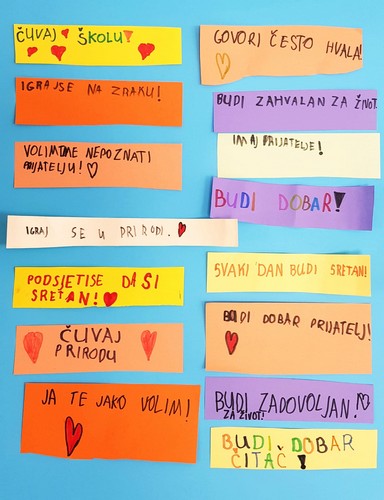 ČUVAJ ŠKOLU!
IGRAJ SE NA ZRAKU!
VOLIM TE NEPOZNATI
PRIJATELJU!
IGRAJ SE U PRIRODI.
PODSJETI SE DA SI
SRETAN!
ČUVAJ
PRIRODU
JA TE JAKO VOLIM!
GOVORI ČESTO HVALA!
BUDI ZAHVALAN ZA ŽIVOT
IMAJ PRIJATELJE!
BUDI DOBAR!
SVAKI DAN BUDI SRETAN!
BUDI DOBAR PRIJATELJ!
BUDI ZADOVOLJAN!
ZA ŽIVOT!
BUDI DOBAR
ČITAČ!